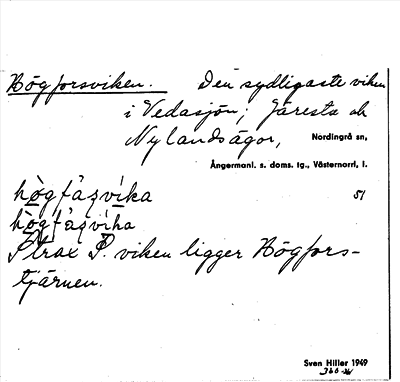 Högforsviken. Den sydligaste viken
i Vedasjön; Järesta och
Nylandsägor, Nordingrå sn,
Ångermanl. s. doms. tg., Västernorrl. l.
hògfàʂvíka 51
hògfàʂvíka
Strax P. viken ligger Högfors-
tjärnen.
Sven Hiller 1949